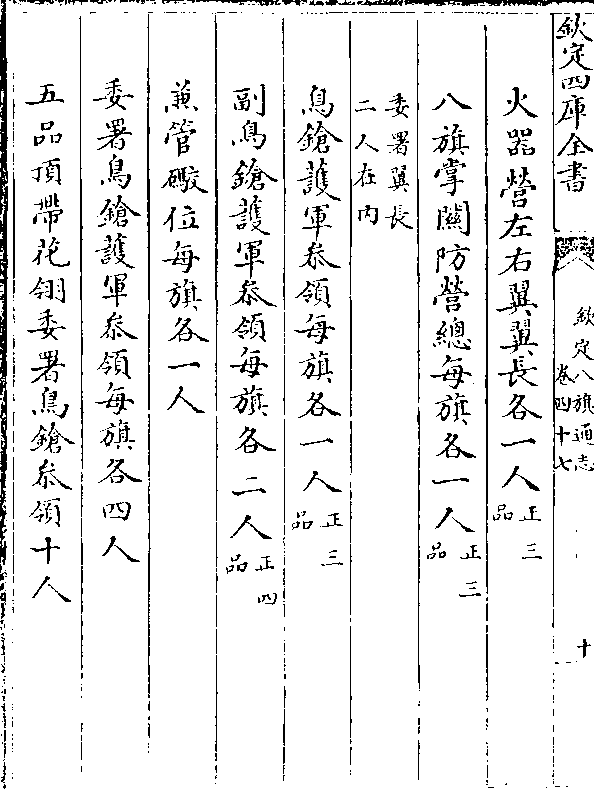 欽定四庫全書
欽定八旗通志
卷四十七
十
火器營左右翼翼長各一人正三品
八旗掌關防營總每旗各一人正三品
委署翼長二人在内
鳥鎗護軍叅領每旗各一人正三品
副鳥鎗護軍叅領每旗各二人正四品
兼管礮位每旗各一人
委署鳥鎗護軍叅領每旗各四人
五品頂帶花翎委署鳥鎗叅領十人